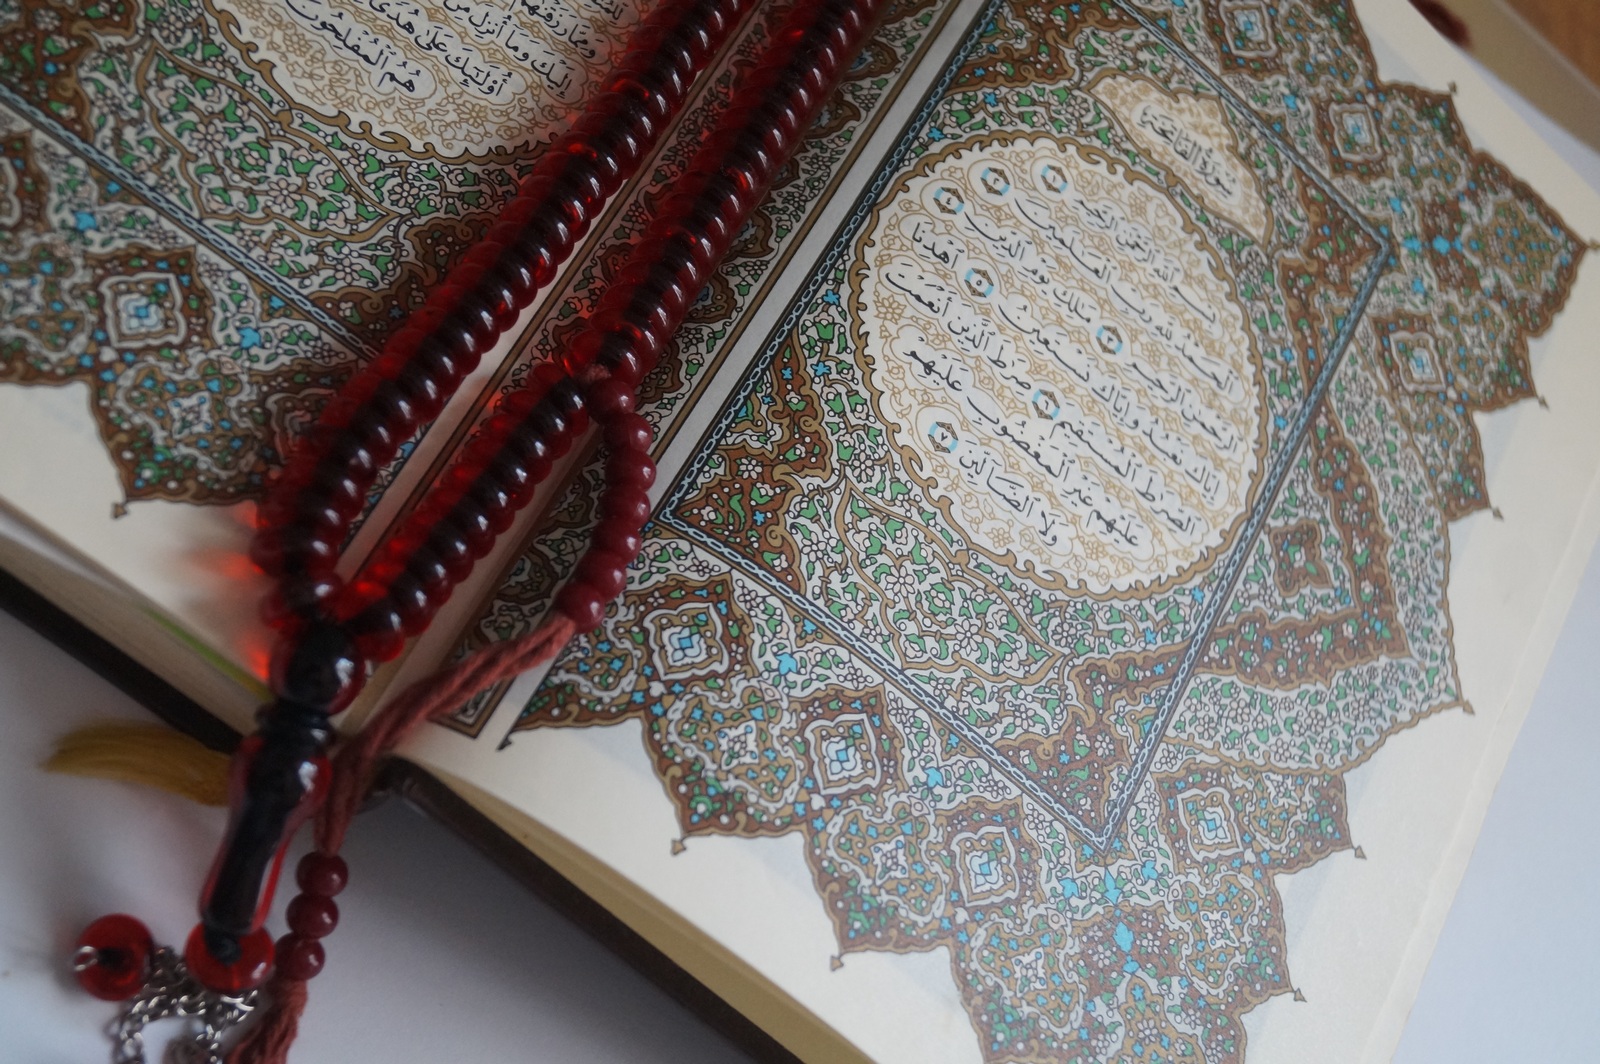 سُورَةُ الفَاتِحَةِ
بِسْمِ ٱللَّهِ ٱلرَّحْمَٰنِ ٱلرَّحِيمِ ١
ٱلْحَمْدُ لِلَّهِ رَبِّ ٱلْعَٰلَمِينَ ٢
ٱلرَّحْمَٰنِ ٱلرَّحِيمِ ٣ مَٰلِكِ يَوْمِ ٱلدِّينِ ٤
إِيَّاكَ نَعْبُدُ وَإِيَّاكَ نَسْتَعِينُ ٥ ٱهْدِنَا
ٱلصِّرَٰطَ ٱلْمُسْتَقِيمَ ٦ صِرَٰطَ ٱلَّذِينَ أَنْعَمْتَ
عَلَيْهِمْ غَيْرِ ٱلْمَغْضُوبِ عَلَيْهِمْ
وَلَا ٱلضَّآلِّينَ ٧
وَمِمَّا رَزَقْنَٰهُمْ
إِلَيْكَ وَمَآ أُنزِلَ مِن
أُو۟لَٰٓئِكَ عَلَىٰ هُدًى
هُمُ ٱلْمُفْلِحُونَ